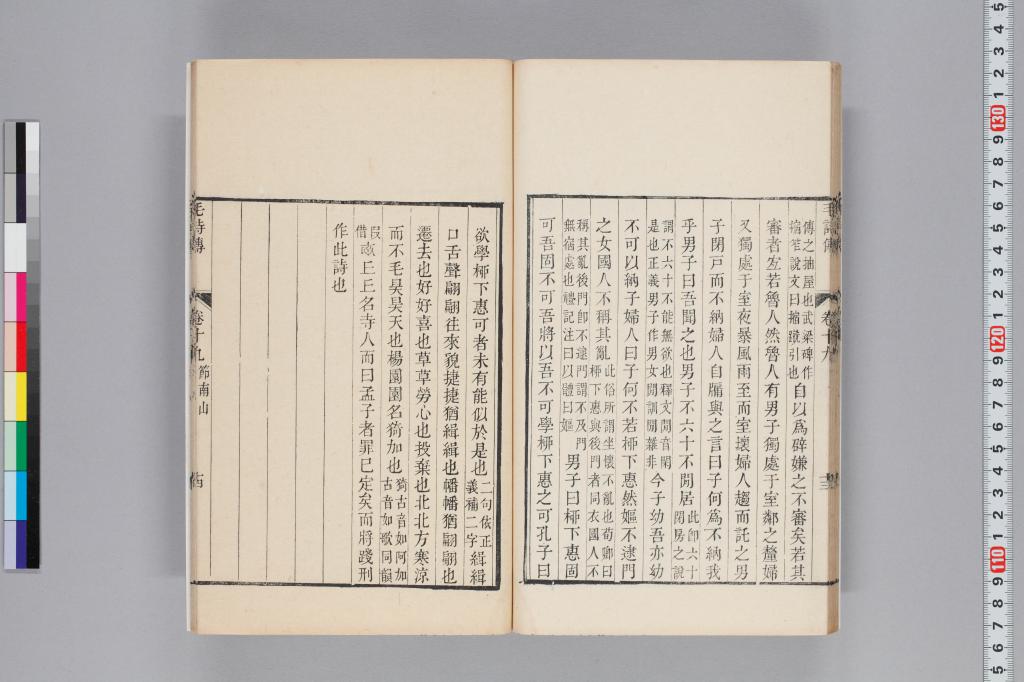 毛詩傳
卷十九
傳之抽屋也武梁碑作
搚笮說文曰搚蹴引也
自以爲辟嫌之不審矣若其
審者宐若魯人然魯人有男子獨處于室鄰之釐婦
又獨處于室夜暴風雨至而室壞婦人趨而託之男
子閉戸而不納婦人自牖與之言曰子何爲不納我
乎男子曰吾聞之也男子不六十不閒居
此卽六十
閉房之說
謂不六十不能無欲也釋文閒音閑
是也正義男子作男女閒訓閒雜非
今子幼吾亦幼
不可以納子婦人曰子何不若桺下惠然嫗不逮門
之女國人不稱其亂
此俗所謂坐懷不亂也荀卿曰
桺下惠與後門者同衣國人不
稱其亂後門卽不逮門謂不及門
無宿處也禮記注曰以體曰嫗
男子曰桺下惠固
可吾固不可吾將以吾不可學桺下惠之可孔子曰
欲學桺下惠可者未有能似於是也
二句依正
義補二字
緝緝
口舌聲翩翩往來皃捷捷猶緝緝也幡幡猶翩翩也
遷去也好好喜也草草勞心也投棄也北北方寒涼
而不毛昊昊天也楊園園名猗加也
猗古音如阿加
古音如歌同韻
叚
借
畝丘丘名寺人而曰孟子者罪已定矣而將踐刑
作此詩也
毛詩傳
卷十九
節南山